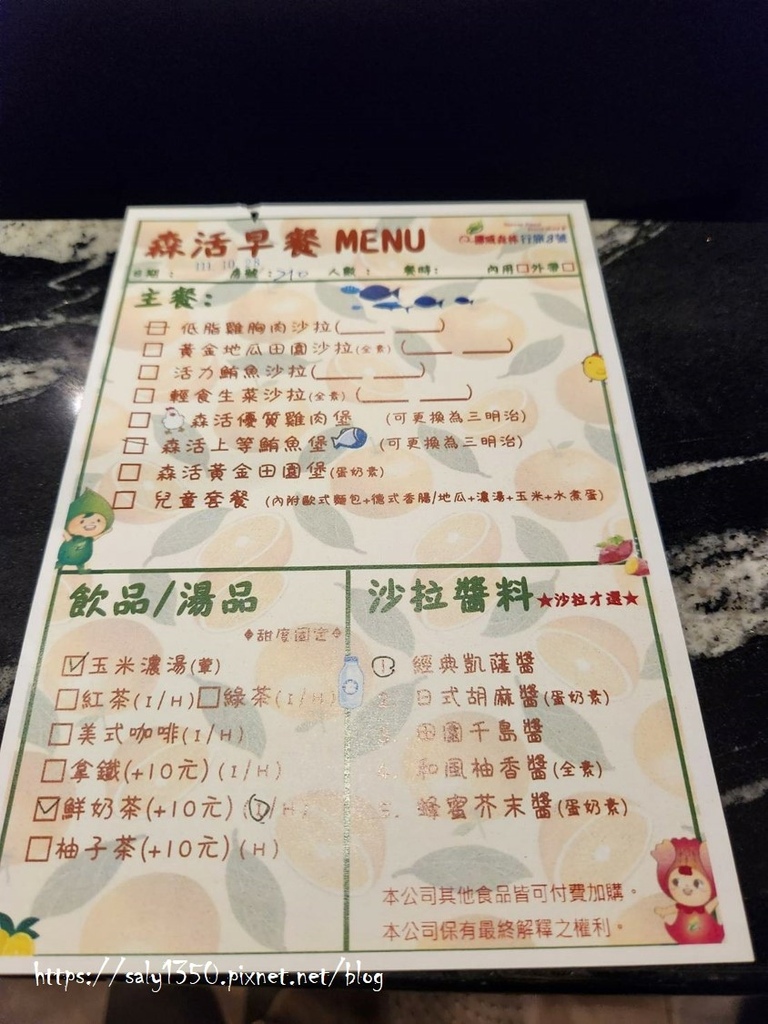 森活早餐 MENU
行旅3號
日期: 111.10.28 房號:210 人數: 餐時: 內用□外帶□
主餐:
□ 低脂雞胸肉沙拉(___ ___)
□ 黃金地瓜田園沙拉(全素)(___ ___)
□ 活力鮪魚沙拉(___ ___)
□ 輕食生菜沙拉(全素)(___ ___)
□ 森活優質雞肉堡 (可更換為三明治)
□ 森活上等鮪魚堡 (可更換為三明治)
□ 森活黃金田園堡(蛋奶素)
□ 兒童套餐 (內附歐式麵包+德式香腸/地瓜+濃湯+玉米+水煮蛋)
飲品/湯品
◆甜度固定◆
☑玉米濃湯(葷)
□紅茶(I/H)□綠茶(I/H)
□美式咖啡(I/H)
□拿鐵(+10元)(I/H)
☑鮮奶茶(+10元)(I/H)
□柚子茶(+10元)(H)
沙拉醬料★沙拉才選★
1. 經典凱薩醬
2. 日式胡麻醬(蛋奶素)
田園千島醬
和風柚香醬(全素)
5. 蜂蜜芥末醬(蛋奶素)
本公司其他食品皆可付費加購。
本公司保有最終解釋之權利。
https://saly1350.pixnet.net/blog